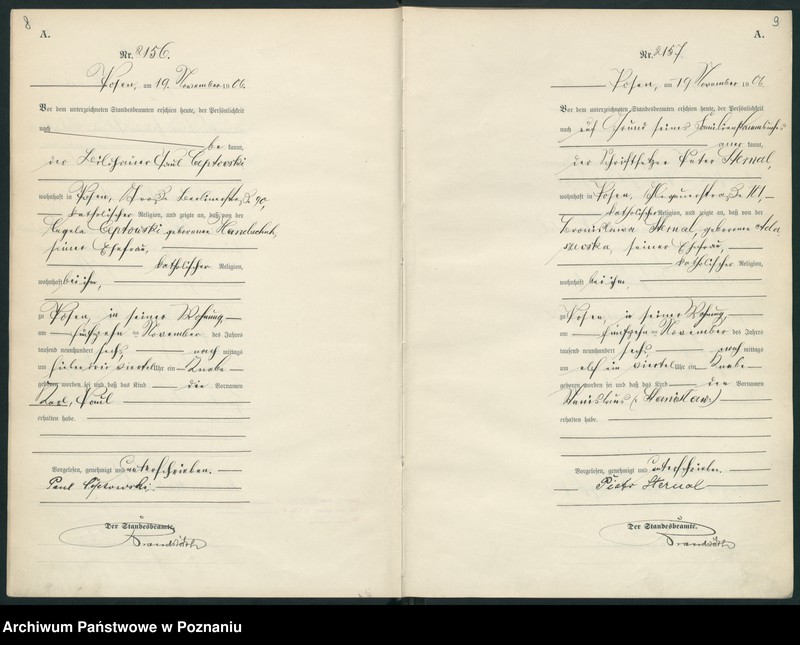 8
A.
Nr. 2156.
Posen, am 19. November 1906.
Vor dem unterzeichneten Standesbeamten erschien heute, der Persönlichkeit
nach
be kannt,
der Bildhauer Paul Ceptowski
wohnhaft in Posen, Große Berlinerstraße
katholischer Religion, und zeigte an, daß von der
Ceptowski geborenen
seiner Ehefrau,
katholischer Religion,
wohnhaft bei ihm,
zu Posen, in seiner Wohnung,
am fünfzehn ten November des Jahres
tausend neunhundert sechs nach mittags
um drei viertel Uhr ein Knabe
geboren worden sei und daß das Kind die Vornamen
Karl, Paul
erhalten habe.
Vorgelesen, genehmigt und unterschrieben.
Paul Ceptowski.
Der Standesbeamte.
9
A.
Nr. 2157.
Posen, am 19 November 1906.
Vor dem unterzeichneten Standesbeamten erschien heute, der Persönlichkeit
nach auf Grund seines Familienstammbuches
aner kannt,
der Schriftsetzer Peter Sternal,
wohnhaft in Posen, 101,
katholischer Religion, und zeigte an, daß von der
Bronislawa Sternal, geborenen
seiner Ehefrau,
katholischer Religion,
wohnhaft bei ihm,
zu Posen, in seiner Wohnung,
am fünfzehn ten November des Jahres
tausend neunhundert sechs nach mittags
um elf ein viertel Uhr ein Knabe
geboren worden sei und daß das Kind den Vornamen
Stanislaus (Stanisław)
erhalten habe.
Vorgelesen, genehmigt und unterschrieben.
Piotr Sternal
Der Standesbeamte.
Archiwum Państwowe w Poznaniu